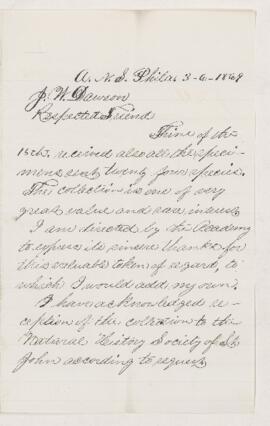 A. N. S. Phila. 3-6-1869
J. W. Dawson
Respected Friend
Thine of the
15th, recived also all the speci-
mens sent twenty four species.
This collection is one of very
great value and rare interest
I am directed by the Academy
to express its sincere thanks for
this valuable token of regard, to
which I would add my own.
I have acknowledged re-
ception of the collection to the
Natural History Society of St
John according to request